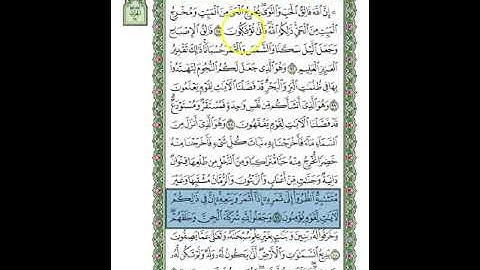 إِنَّ اللَّهَ فَالِقُ الْحَبِّ وَالنَّوَىٰ يُخْرِجُ الْحَيَّ مِنَ الْمَيِّتِ وَمُخْرِجُ
الْمَيِّتِ مِنَ الْحَيِّ ذَٰلِكُمُ اللَّهُ فَأَنَّىٰ تُؤْفَكُونَ فَالِقُ الْإِصْبَاحِ
وَجَعَلَ اللَّيْلَ سَكَنًا وَالشَّمْسَ وَالْقَمَرَ حُسْبَانًا ذَٰلِكَ تَقْدِيرُ
الْعَزِيزِ الْعَلِيمِ وَهُوَ الَّذِي جَعَلَ لَكُمُ النُّجُومَ لِتَهْتَدُوا
بِهَا فِي ظُلُمَٰتِ الْبَرِّ وَالْبَحْرِ قَدْ فَصَّلْنَا الْآيَٰتِ لِقَوْمٍ يَعْلَمُونَ
وَهُوَ الَّذِي أَنشَأَكُم مِّن نَّفْسٍ وَٰحِدَةٍ فَمُسْتَقَرٌّ وَمُسْتَوْدَعٌ
قَدْ فَصَّلْنَا الْآيَٰتِ لِقَوْمٍ يَفْقَهُونَ وَهُوَ الَّذِي أَنزَلَ مِنَ
السَّمَاءِ مَاءً فَأَخْرَجْنَا بِهِ نَبَاتَ كُلِّ شَيْءٍ فَأَخْرَجْنَا مِنْهُ
خَضِرًا نُّخْرِجُ مِنْهُ حَبًّا مُّتَرَاكِبًا وَمِنَ النَّخْلِ مِن طَلْعِهَا قِنْوَانٌ
دَانِيَةٌ وَجَنَّٰتٍ مِّنْ أَعْنَابٍ وَالزَّيْتُونَ وَالرُّمَّانَ مُشْتَبِهًا وَغَيْرَ
مُتَشَٰبِهٍ انظُرُوا إِلَىٰ ثَمَرِهِ إِذَا أَثْمَرَ وَيَنْعِهِ إِنَّ فِي ذَٰلِكُمْ
لَآيَٰتٍ لِّقَوْمٍ يُؤْمِنُونَ وَجَعَلُوا لِلَّهِ شُرَكَاءَ الْجِنَّ وَخَلَقَهُمْ
وَخَرَقُوا لَهُ بَنِينَ وَبَنَٰتٍ بِغَيْرِ عِلْمٍ سُبْحَٰنَهُ وَتَعَٰلَىٰ عَمَّا يَصِفُونَ
بَدِيعُ السَّمَٰوَٰتِ وَالْأَرْضِ أَنَّىٰ يَكُونُ لَهُ وَلَدٌ وَلَمْ تَكُن لَّهُ